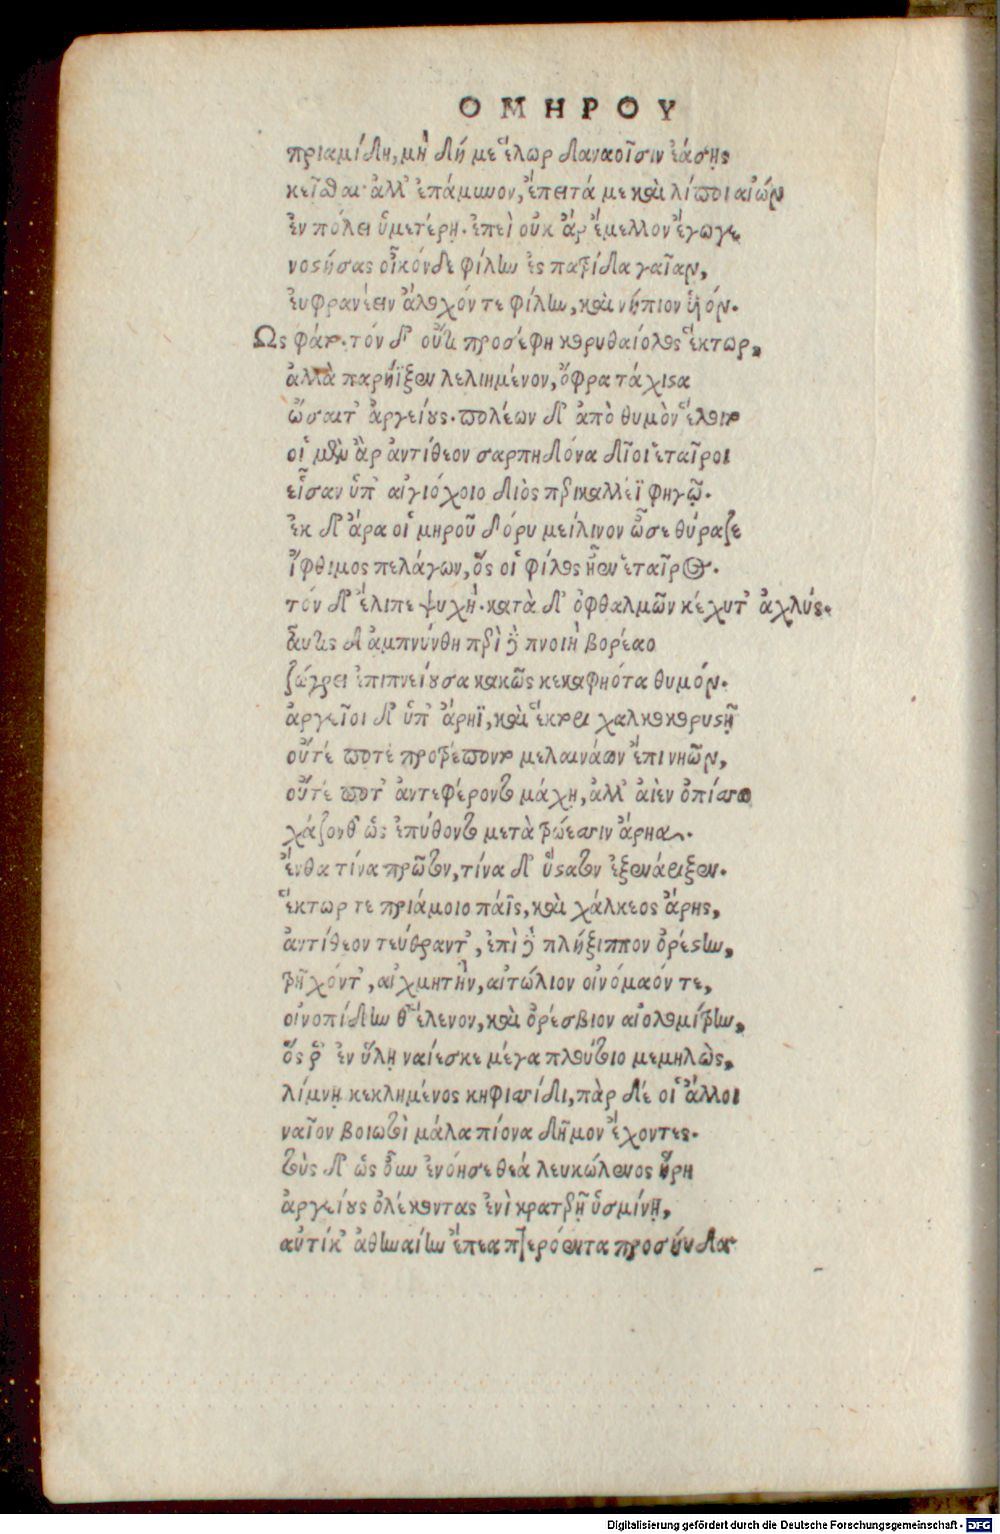 ΟΜΗΡΟΥ
πριαμίδη, μὴ δή με ἕλωρ δαναοῖσιν ἐάσῃς
κεῖσθαι· ἀλλ' ἐπάμυνον, ἔπειτά με καὶ λίποι αἰών
ἐν πόλει ὑμετέρῃ. ἐπεὶ οὐκ ἄρ' ἔμελλον ἔγωγε
νοστήσας οἶκόνδε φίλην ἐς πατρίδα γαῖαν,
ἐυφρανέειν ἄλοχόν τε φίλην, καὶ νήπιον υἱόν.
Ως φάτο. τόν δ' οὔτι προσέφη κορυθαίολος ἕκτωρ,
ἀλλὰ παρήϊξεν λελιημένον, ὄφρα τάχιστα
ὤσαιτ' ἀργείους. πολέων δ' ἀπὸ θυμὸν ἕλοιτο
οἱ μὲν ἂρ ἀντίθεον σαρπηδόνα δῖοι ἑταῖροι
εἷσαν ὑπ' αἰγιόχοιο διὸς περικαλλέϊ φηγῷ.
ἐκ δ' ἄρα οἱ μηροῦ δόρυ μείλινον ὦσε θύραζε
ἴφθιμος πελάγων, ὅς οἱ φίλος ἦεν ἑταῖρος.
τόν δ' ἔλιπε ψυχή. κατὰ δ' ὀφθαλμῶν κέχυτ' ἀχλύς.
αὖτις δ' ἀμπνύνθη περὶ δὲ πνοιὴ βορέαο
ζώγρει ἐπιπνείουσα κακῶς κεκαφηότα θυμόν.
ἀργεῖοι δ' ὑπ' ἄρηϊ, καὶ ἕκτορι χαλκοκορυστῇ
οὔτέ ποτε προτρέποντο μελαινάων ἐπὶ νηῶν,
οὔτέ ποτ' ἀντεφέροντο μάχῃ, ἀλλ' αἰὲν ὀπίσσω
χάζονθ' ὡς ἐπύθοντο μετὰ τρώεσσιν ἄρηα.
ἔνθα τίνα πρῶτον, τίνα δ' ὕστατον ἐξενάριξεν.
ἕκτωρ τε πριάμοιο πάϊς, καὶ χάλκεος ἄρης,
ἀντίθεον τεύθραντ', ἐπὶ δὲ πλήξιππον ὀρέστην,
τρῆχόντ', αἰχμητὴν, αἰτώλιον οἰνόμαόν τε,
οἰνοπίδην θ' ἕλενον, καὶ ὀρέσβιον αἰολομίτρην,
ὅς ῥ' ἐν ὕλῃ ναίεσκε μέγα πλούτοιο μεμηλὼς,
λίμνῃ κεκλημένος κηφισσίδι, πὰρ δέ οἱ ἄλλοι
ναῖον βοιωτοὶ μάλα πίονα δῆμον ἔχοντες.
τοὺς δ' ὡς οὖν ἐνόησε θεά λευκώλενος ἥρη
ἀργείους ὀλέκοντας ἐνὶ κρατερῇ ὑσμίνῃ,
αὐτίκ' ἀθηναίην ἔπεα πτερόεντα προσηύδα
Digitalisierung gefördert durch die Deutsche Forschungsgemeinschaft - DFG